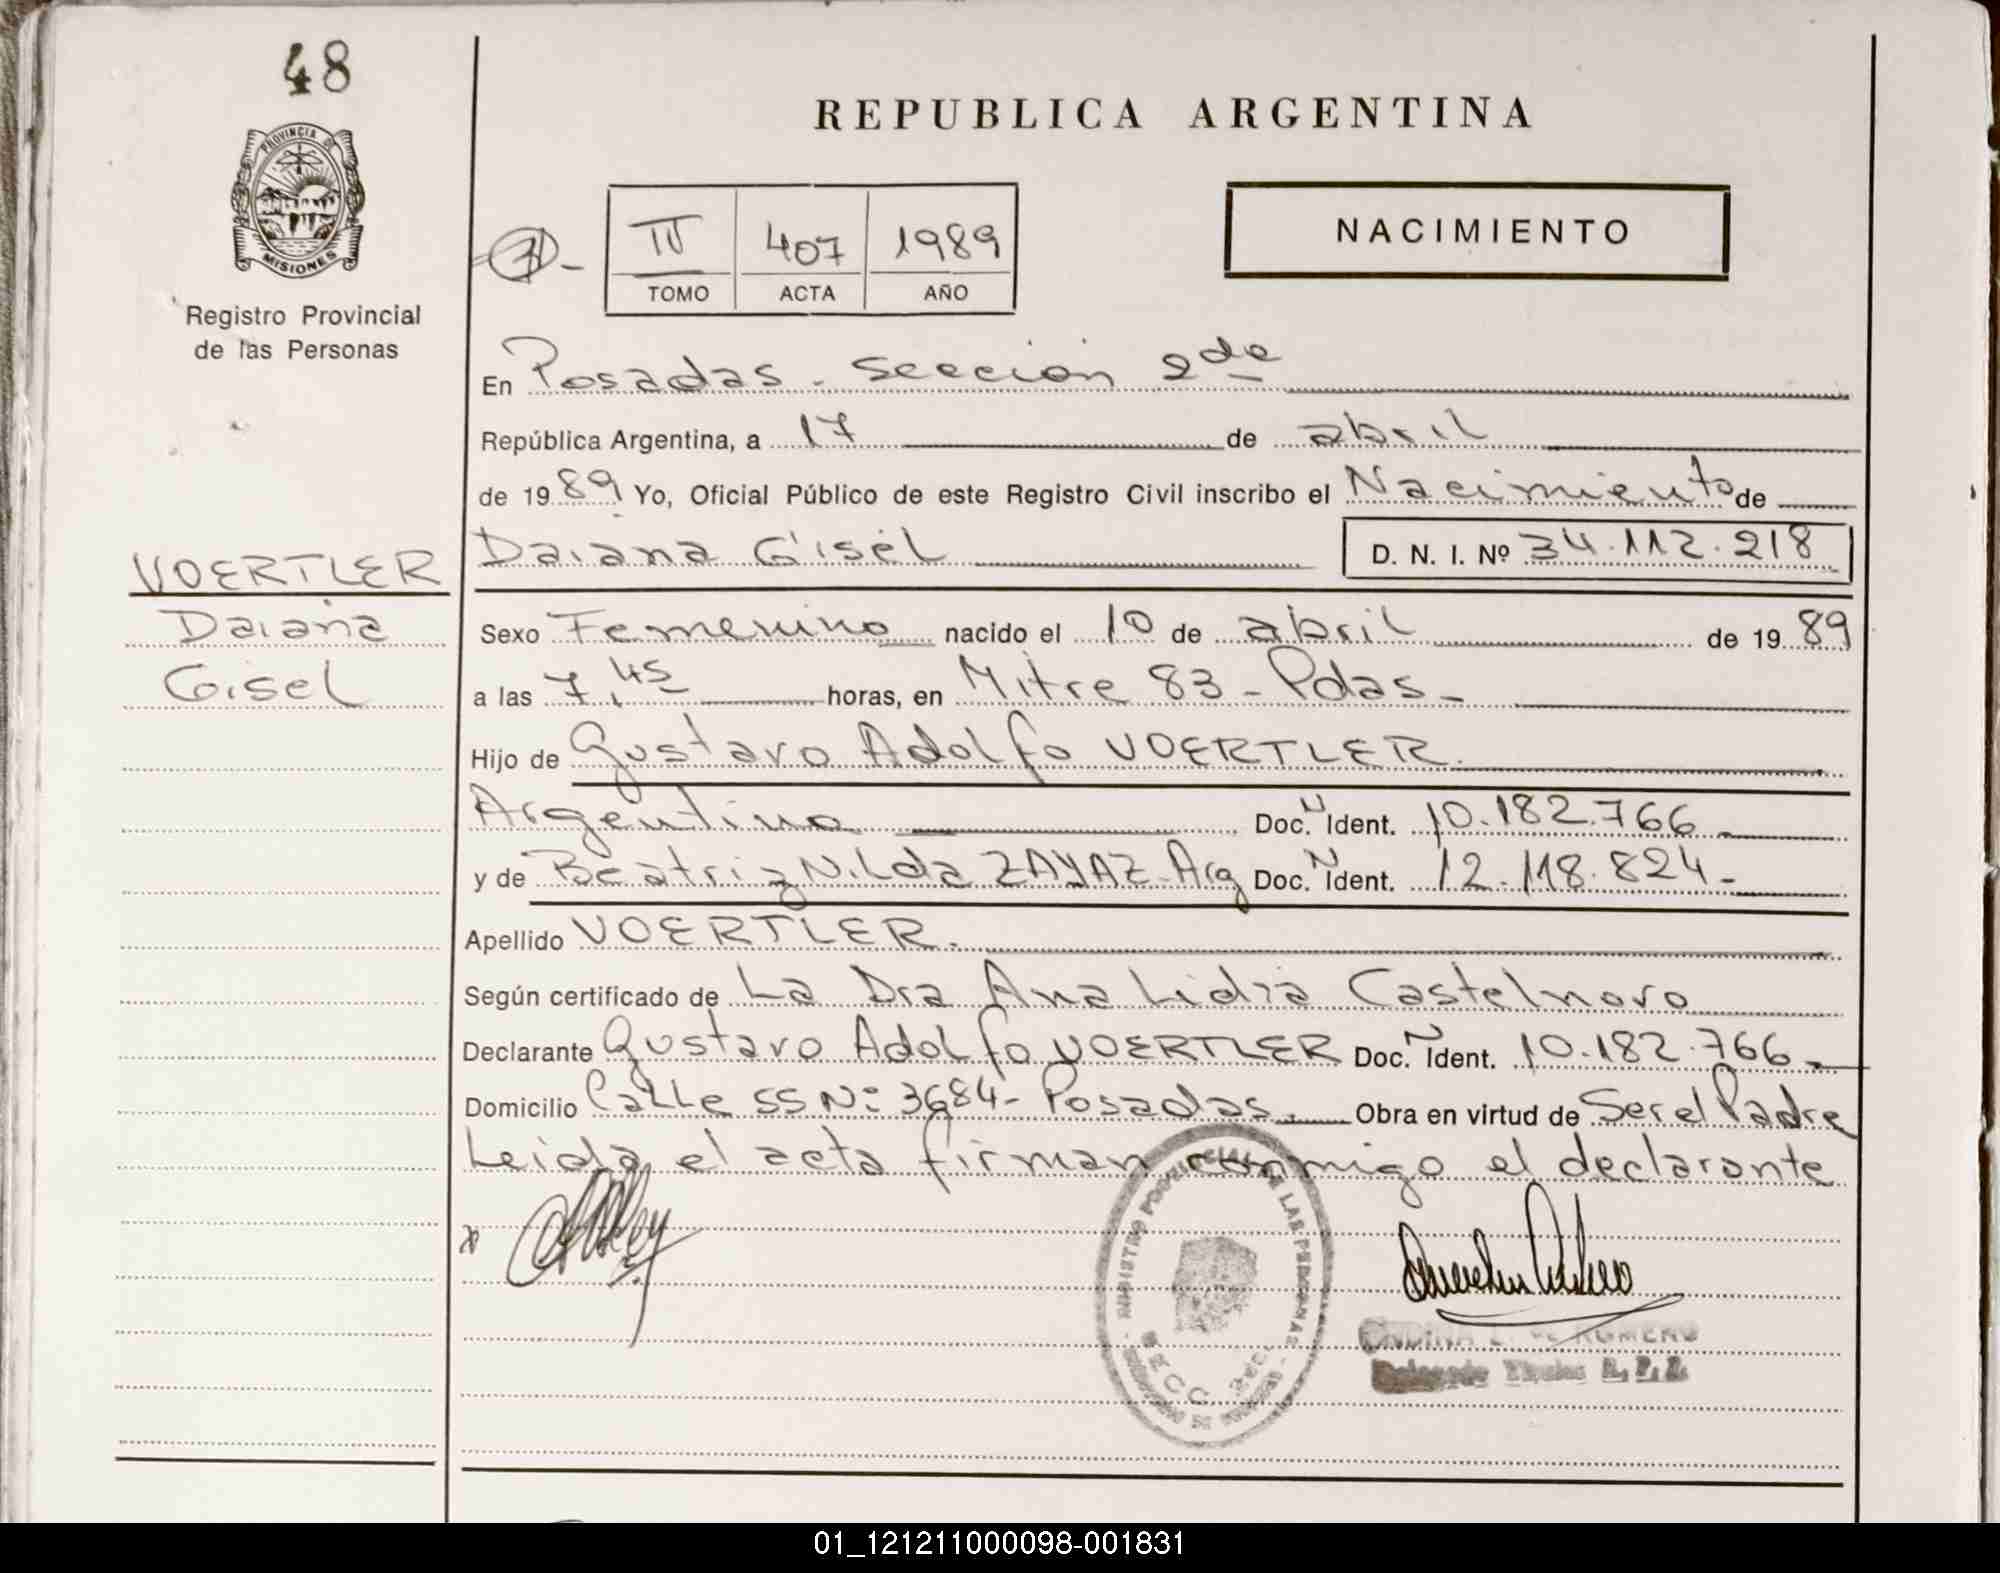 48
REPUBLICA ARGENTINA
PROVINCIA DE
MISIONES
Registro Provincial
de las Personas
II 407 1989
TOMO ACTA AÑO
NACIMIENTO
En Posadas - Sección 2da
República Argentina, a 17 de abril
de 1989 Yo, Oficial Público de este Registro Civil inscribo el Nacimiento de
VOERTLER
Daiana
Gisel
Daiana Gisel D. N. I. Nº 34.112.218
Sexo Femenino nacido el 10 de abril de 1989
a las 7,45 horas, en Mitre 83 - Pdas -
Hijo de Gustavo Adolfo VOERTLER.
Argentino Doc. N Ident. 10.182.766 -
y de Beatriz Nilda ZAYAZ - Arg Doc. N Ident. 12.118.824 -
Apellido VOERTLER.
Según certificado de La Dra Ana Lidia Castelnovo
Declarante Gustavo Adolfo VOERTLER Doc. N Ident. 10.182.766 -
Domicilio Calle SS Nº 3684 - Posadas. Obra en virtud de Ser el Padre
Leida el acta firman conmigo el declarante
REGISTRO PROVINCIAL DE LAS PERSONAS
ROMERO
01_121211000098-001831